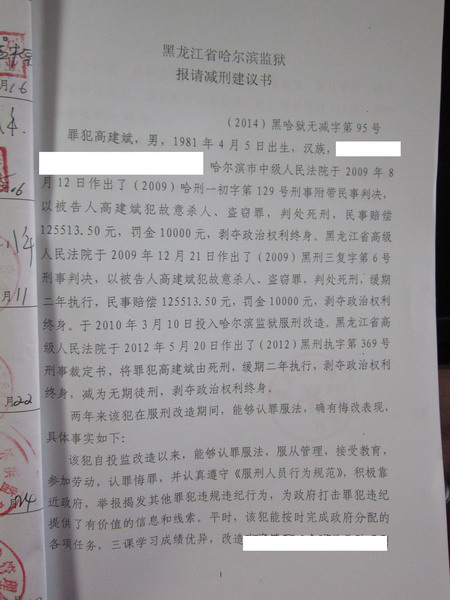 黑龙江省哈尔滨监狱
报请减刑建议书
（2014）黑哈狱无减字第 95 号
罪犯高建斌，男，1981 年 4 月 5 日出生，汉族，
哈尔滨市中级人民法院于 2009 年 8
月 12 日作出了（2009）哈刑一初字第 129 号刑事附带民事判决，
以被告人高建斌犯故意杀人、盗窃罪，判处死刑，民事赔偿
125513.50 元，罚金 10000 元，剥夺政治权利终身。黑龙江省高级
人民法院于 2009 年 12 月 21 日作出了（2009）黑刑三复字第 6 号
刑事判决，以被告人高建斌犯故意杀人、盗窃罪，判处死刑，缓期
二年执行，民事赔偿 125513.50 元，罚金 10000 元，剥夺政治权利
终身。于 2010 年 3 月 10 日投入哈尔滨监狱服刑改造。黑龙江省高
级人民法院于 2012 年 5 月 20 日作出了（2012）黑刑执字第 369 号
刑事裁定书，将罪犯高建斌由死刑，缓期二年执行，剥夺政治权利
终身，减为无期徒刑，剥夺政治权利终身。
两年来该犯在服刑改造期间，能够认罪服法，确有悔改表现，
具体事实如下：
该犯自投监改造以来，能够认罪服法，服从管理，接受教育，
参加劳动，认罪悔罪，并认真遵守《服刑人员行为规范》，积极靠
近政府，举报揭发其他罪犯违规违纪行为，为政府打击罪犯违纪
提供了有价值的信息和线索。平时，该犯能按时完成政府分配的
各项任务。三课学习成绩优异，改造
1
月16
年
.06
年
月11
月22
24